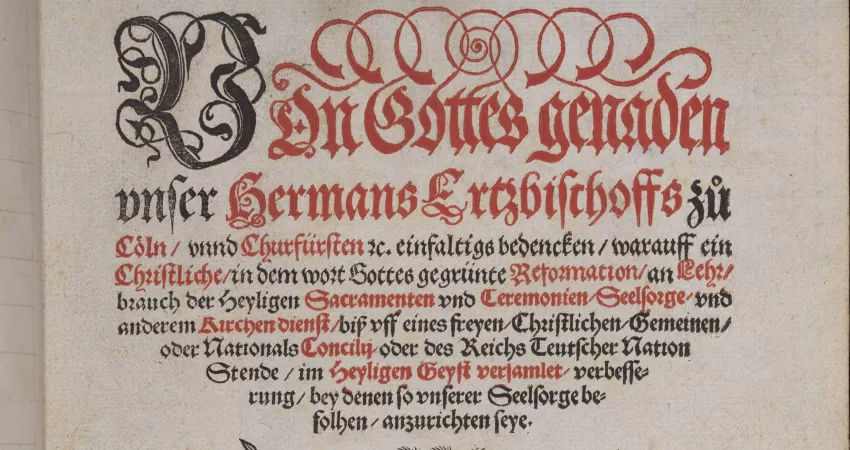 VOn Gottes genaden
vnser Hermans Ertzbischoffs zů
Cöln / vnnd Churfürsten ꝛc. einfaltigs bedencken / warauff ein
Christliche / in dem wort Gottes gegrünte Reformation / an Lehr /
brauch der Heyligen Sacramenten vnd Ceremonien / Seelsorge / vnd
anderem Kirchen dienst / biß vff eines freyen / Christlichen / Gemeinen /
oder Nationals Concilij / oder des Reichs Teutscher Nation
Stende / im Heyligen Geyst versamlet / verbesse-
rung / bey denen so vnserer Seelsorge be-
folhen / anzurichten seye.